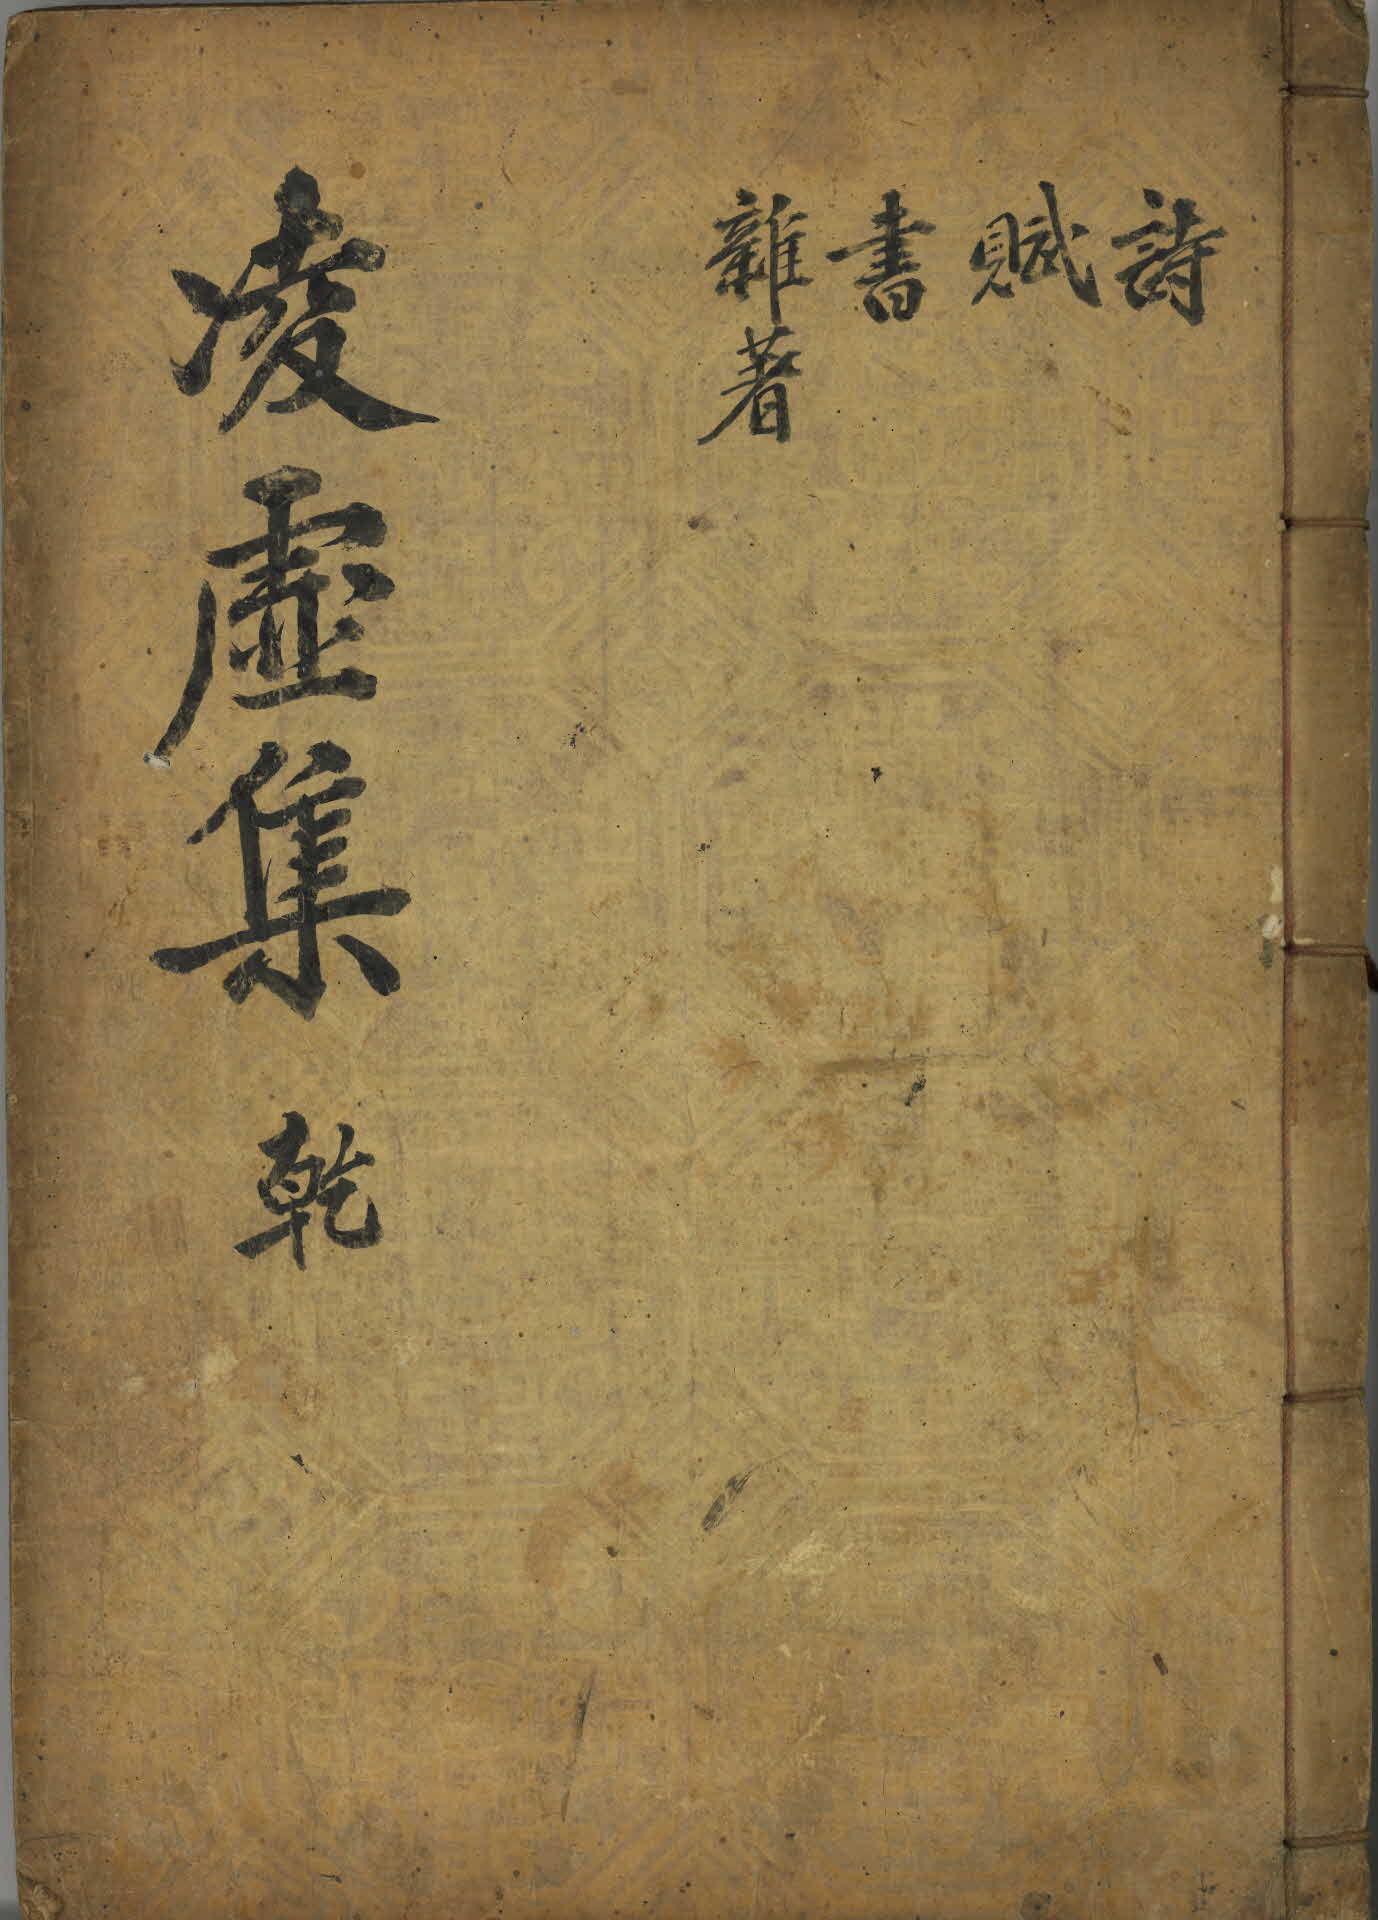 詩
賦
書
雜著
凌虛集 乾